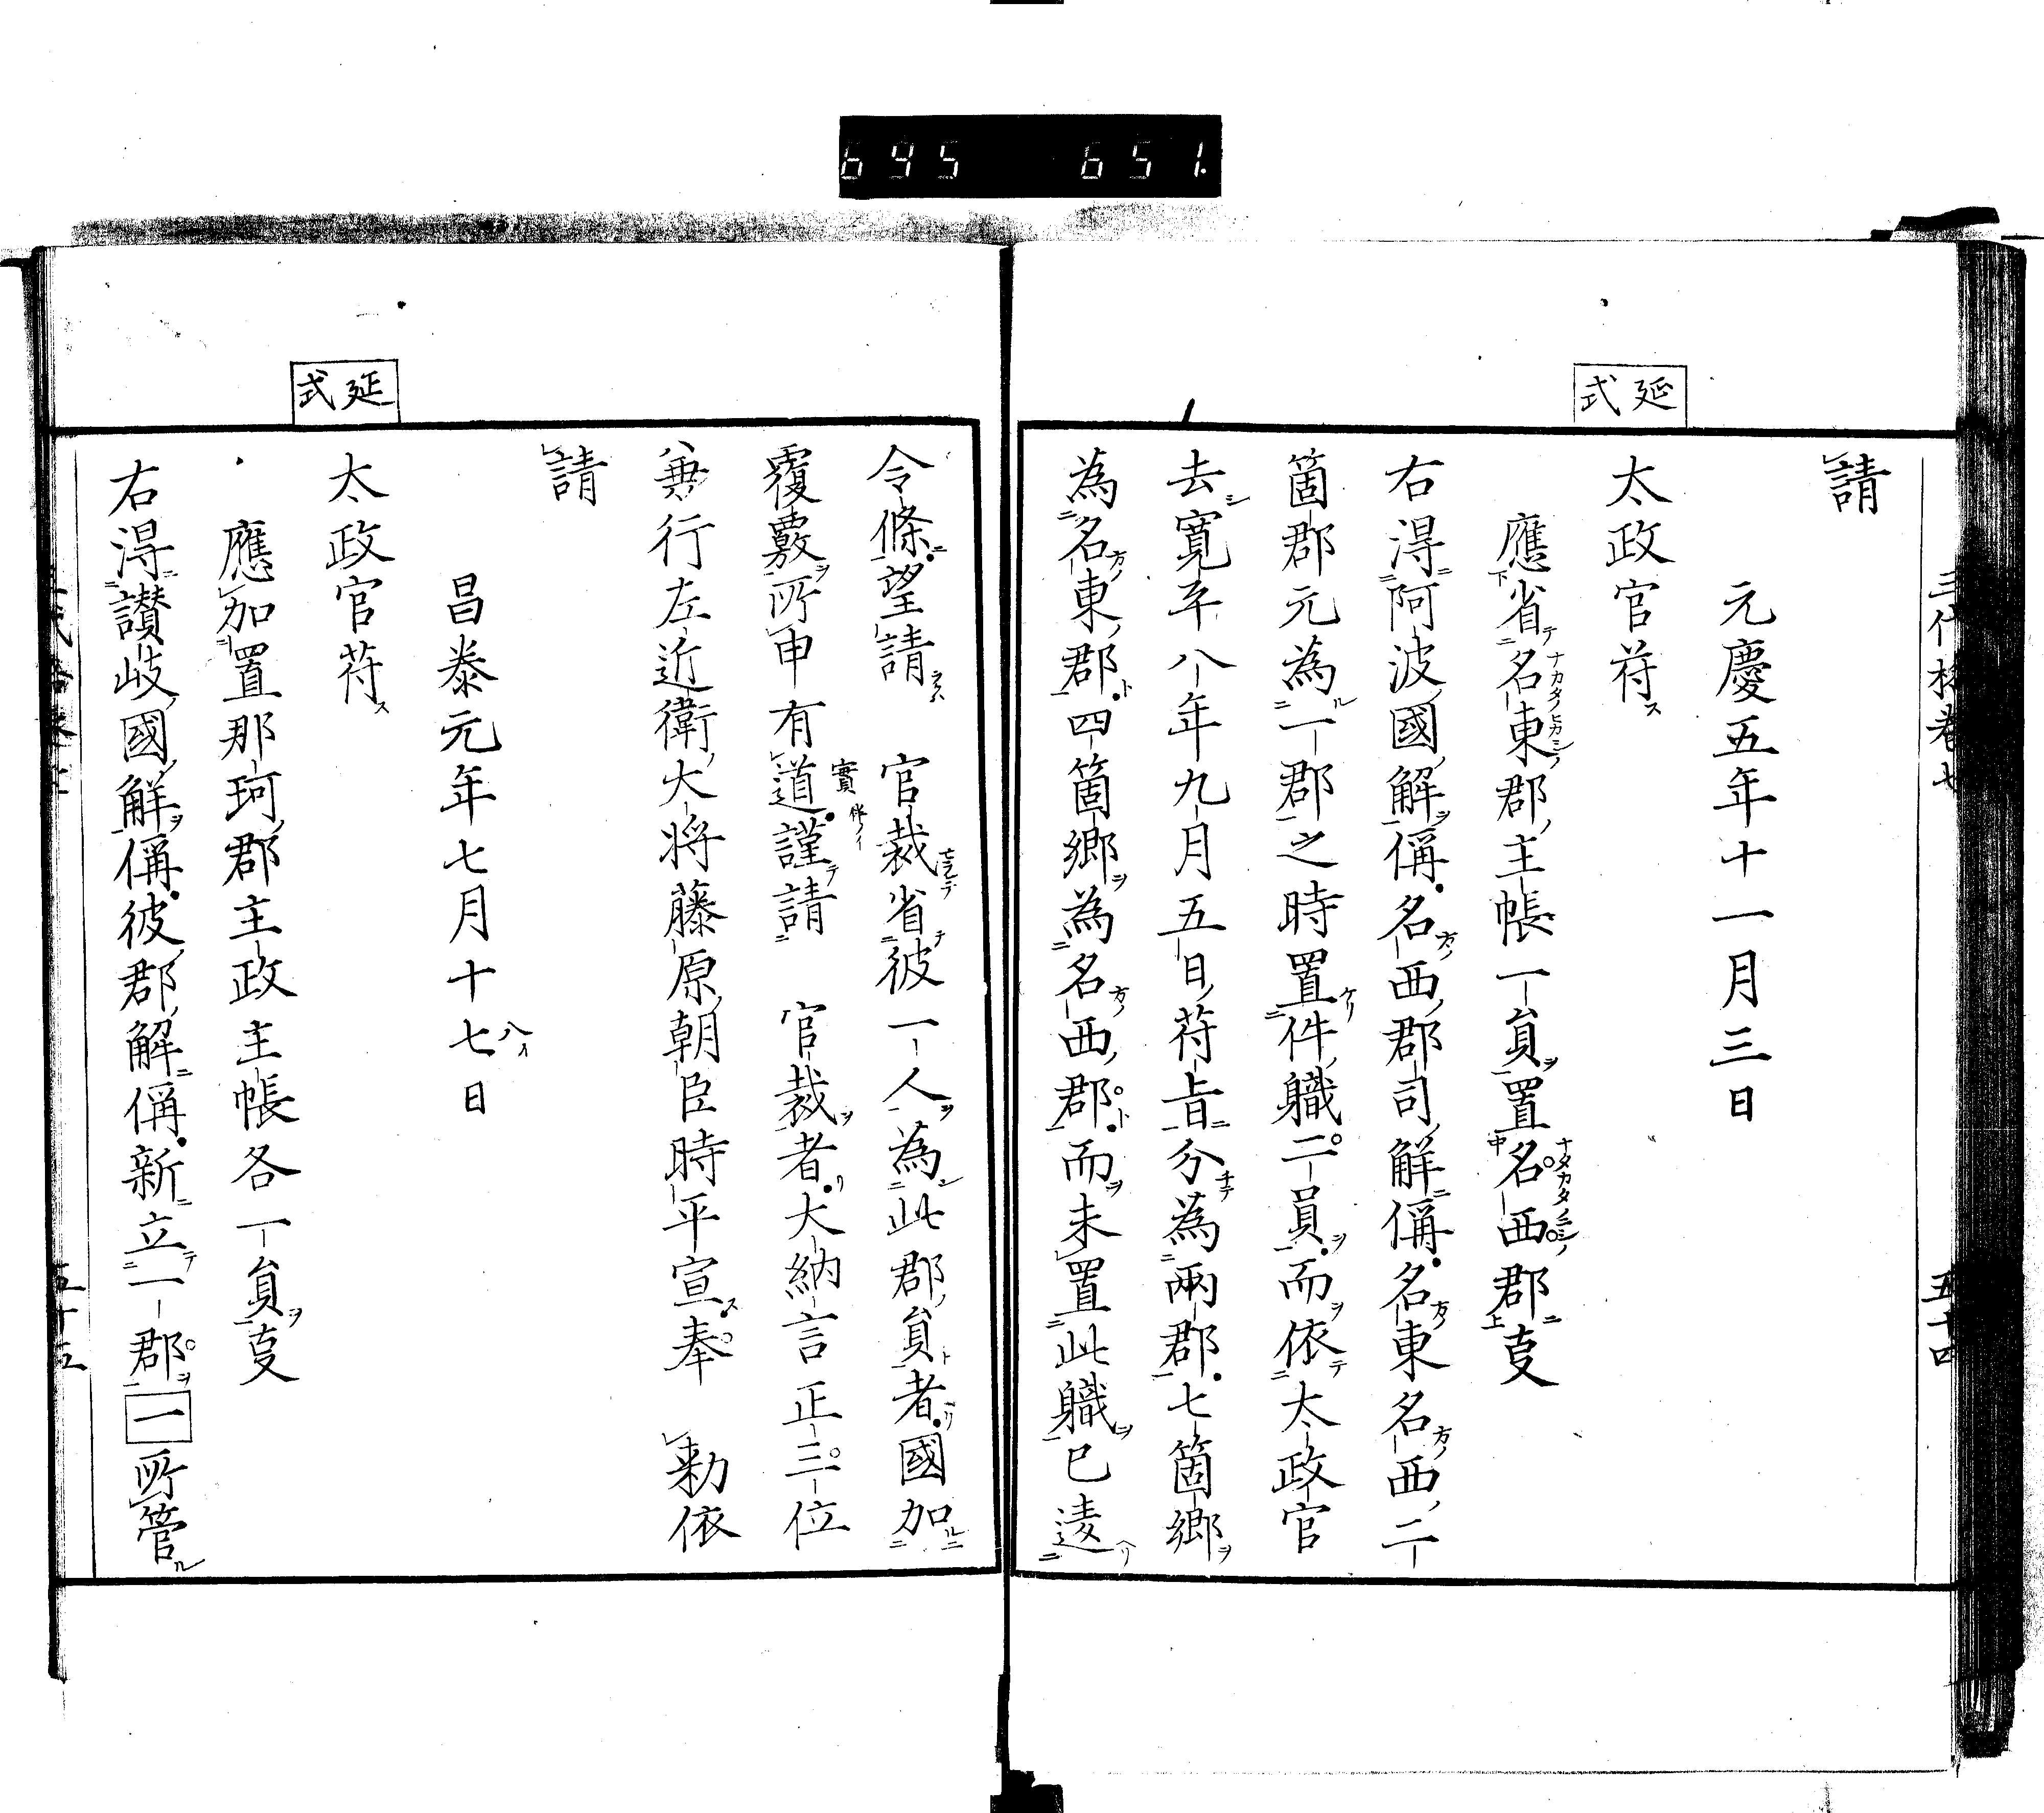 645 651.
三代格卷七 五十四
延式
請
元慶五年十一月三日
太政官符ス
應省名東郡主帳一員置名西郡㕝
右得阿波國解偁名西郡司解偁名東名西二
箇郡元為一郡之時置件職二員而依太政官
去寛平八年九月五日符旨分為兩郡七箇郷
為名東郡四箇郷為名西郡而未置此職已違
延式
令條望請 官裁省彼一人為此郡員者國加
覆覈所申有道謹請 官裁者大納言正三位
兼行左近衛大将藤原朝臣時平宣奉 勅依
請
昌泰元年七月十七日
太政官符ス
應加置那珂郡主政主帳各一員㕝
右得讃岐國解偁彼郡解偁新立一郡一所管
五十五